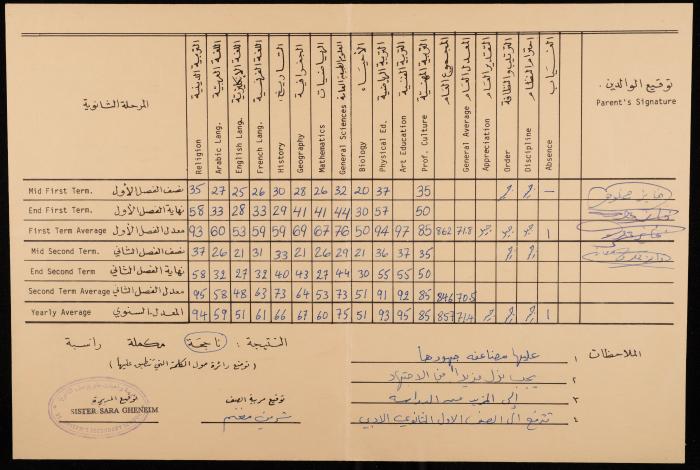 المرحلة الثانوية
التربية الدينية اللغة العربية اللغة الإنكليزية اللغة الفرنسية التاريخ الجغرافية الرياضيات العلوم الطبيعية العامة الأحياء التربية الرياضية التربية الفنية التربية المهنية المجموع العام المعدل العام التقدير العام الترتيب والنظافة احترام النظام الغياب
توقيع الوالدين .
Religion Arabic Lang. English Lang. French Lang. History Geography Mathematics General Sciences Biology Physical Ed. Art Education Prof. Culture General Average Appreciation Order Discipline Absence
Parent's Signature
Mid First Term. نصف الفصل الأول 35 27 25 26 30 28 26 32 20 37 35 —
End First Term. نهاية الفصل الأول 58 33 28 33 29 41 41 44 30 57 50
First Term Average معدل الفصل الأول 93 60 53 59 59 69 67 76 50 94 97 85 862 71.8 1
Mid Second Term. نصف الفصل الثاني 37 26 21 31 33 21 26 29 21 36 37 35
End Second Term نهاية الفصل الثاني 58 32 27 32 40 43 27 44 30 55 55 50
Second Term Average معدل الفصل الثاني 95 58 48 63 73 64 53 73 51 91 92 85 846 70.5
Yearly Average المعدل السنوي 94 59 51 61 66 67 60 75 51 93 95 85 857 71.4 1
النتيجة : ناجحة مكملة راسبة
( توضع دائرة حول الكلمة التي تنطبق عليها )
الملاحظات
1 عليها مضاعفة جهودها
2 يجب بذل مزيداً من الاجتهاد
3 إلى المزيد من الدراسة
4 تترفع إلى الصف الاول الثانوي الادبي
توقيع المديرة
SISTER SARA GHENEIM
توقيع مربية الصف